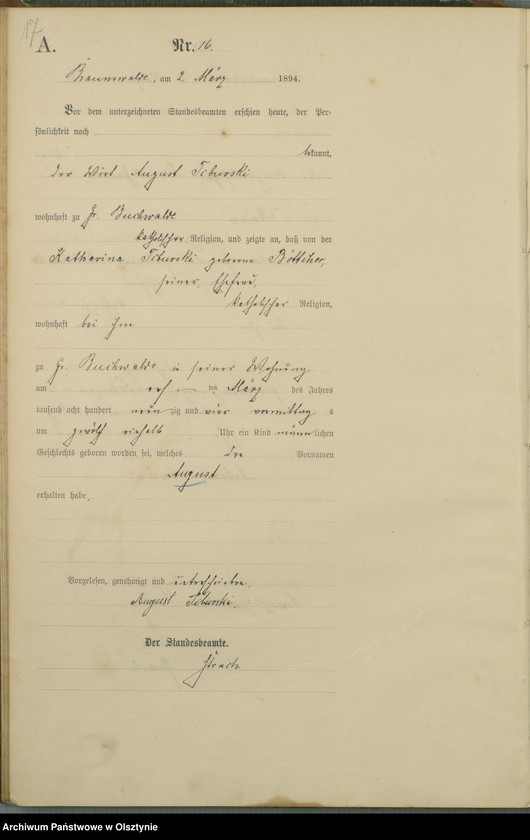 17
A.
Nr. 16.
Braunswalde, am 2. März 1894.
Vor dem unterzeichneten Standesbeamten erschien heute, der Per-
sönlichkeit nach
bekannt,
der Wirt August Tiburski
wohnhaft zu Gr. Buchwalde
katholischer Religion, und zeigte an, daß von der
Katharina Tiburski geborene Böttcher,
seiner Ehefrau,
katholischer Religion,
wohnhaft bei ihm
zu Gr. Buchwalde in seiner Wohnung
am ten März des Jahres
tausend acht hundert neun zig und vier vormittags
um zwölf Uhr ein Kind männlichen
Geschlechts geboren worden sei, welches den Vornamen
August
erhalten habe.
Vorgelesen, genehmigt und unterschrieben.
August Tiburski.
Der Standesbeamte.
Archiwum Państwowe w Olsztynie